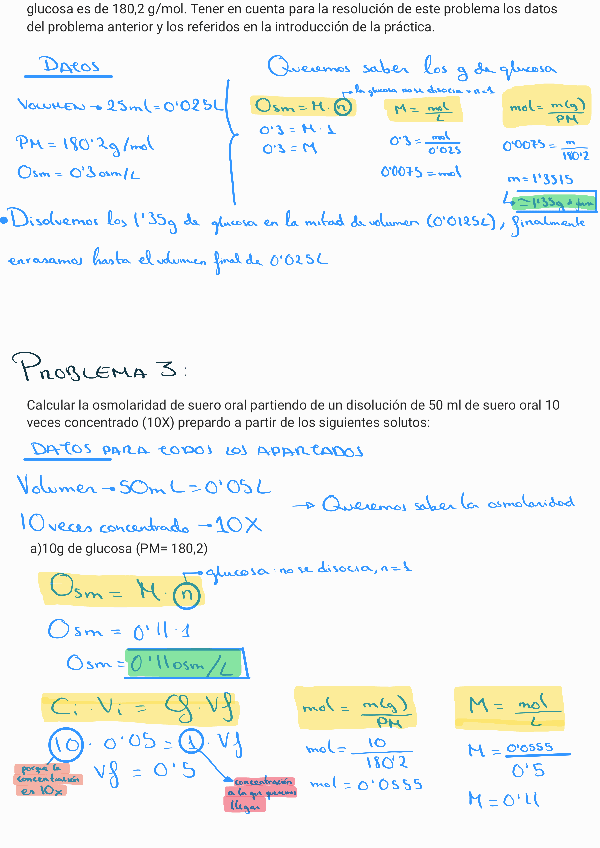 glucosa es de 180,2 g/mol. Tener en cuenta para la resolución de este problema los datos
del problema anterior y los referidos en la introducción de la práctica.
DATOS
Queremos saber los g de glucosa
VOLUMEN → 25ml = 0'025L
PM = 180'2g/mol
Osm = 0'3osm/L
la glucosa no se disocia → n=1
Osm = M · n
0'3 = M · 1
0'3 = M
M = mol/L
0'3 = mol/0'025
0'0075 = mol
mol = m(g)/PM
0'0075 = m/180'2
m = 1'3515
≃ 1'35g
• Disolvemos los 1'35g de glucosa en la mitad de volumen (0'0125L), finalmente
enrasamos hasta el volumen final de 0'025L
PROBLEMA 3:
Calcular la osmolaridad de suero oral partiendo de un disolución de 50 ml de suero oral 10
veces concentrado (10X) prepardo a partir de los siguientes solutos:
DATOS PARA TODOS LOS APARTADOS
Volumen → 50mL = 0'05L
→ Queremos saber la osmolaridad
10 veces concentrado → 10X
a)10g de glucosa (PM= 180,2)
→ glucosa: no se disocia, n=1
Osm = M · n
Osm = 0'11 · 1
Osm = 0'11osm/L
Ci · Vi = Cf · Vf
10 · 0'05 = 1 · Vf
Vf = 0'5
porque la
concentración
es 10x
concentración
a la que queremos
llegar
mol = m(g)/PM
mol = 10/180'2
mol = 0'0555
M = mol/L
M = 0'0555/0'5
M = 0'11